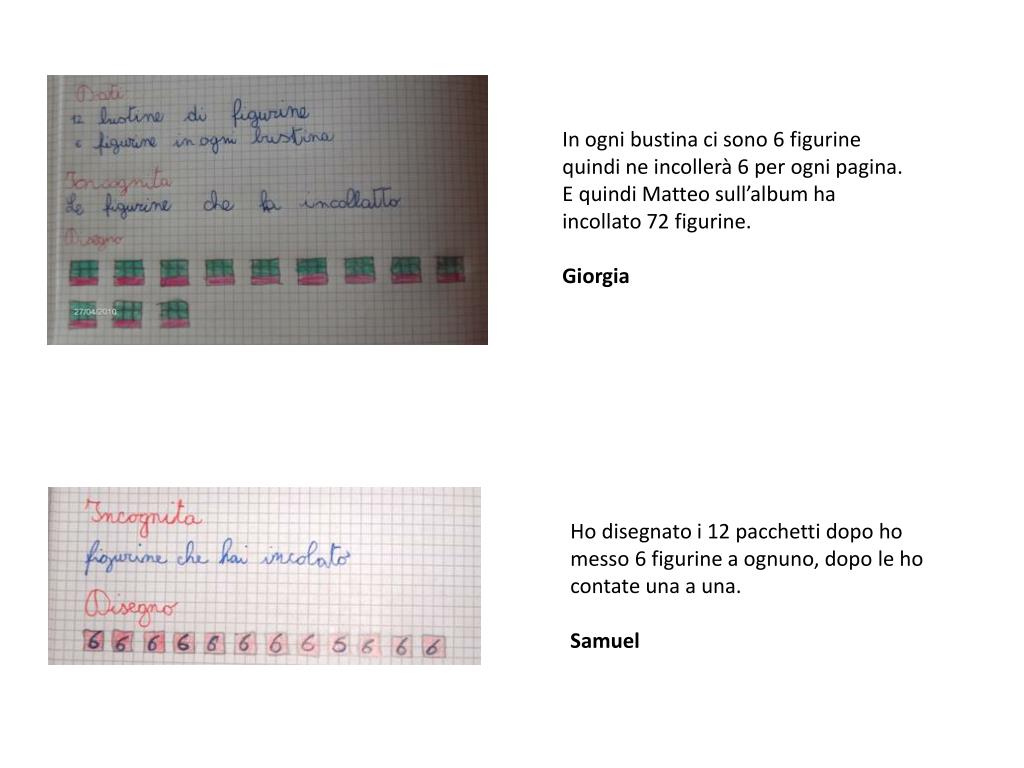 Dati
12 bustine di figurine
6 figurine in ogni bustina
Incognita
Le figurine che ha incollatto
Disegno
27/04/2010
In ogni bustina ci sono 6 figurine
quindi ne incollerà 6 per ogni pagina.
E quindi Matteo sull’album ha
incollato 72 figurine.
Giorgia
Incognita
figurine che hai incolato
Disegno
6 6 6 6 6 6 6 6 6 6 6 6
Ho disegnato i 12 pacchetti dopo ho
messo 6 figurine a ognuno, dopo le ho
contate una a una.
Samuel